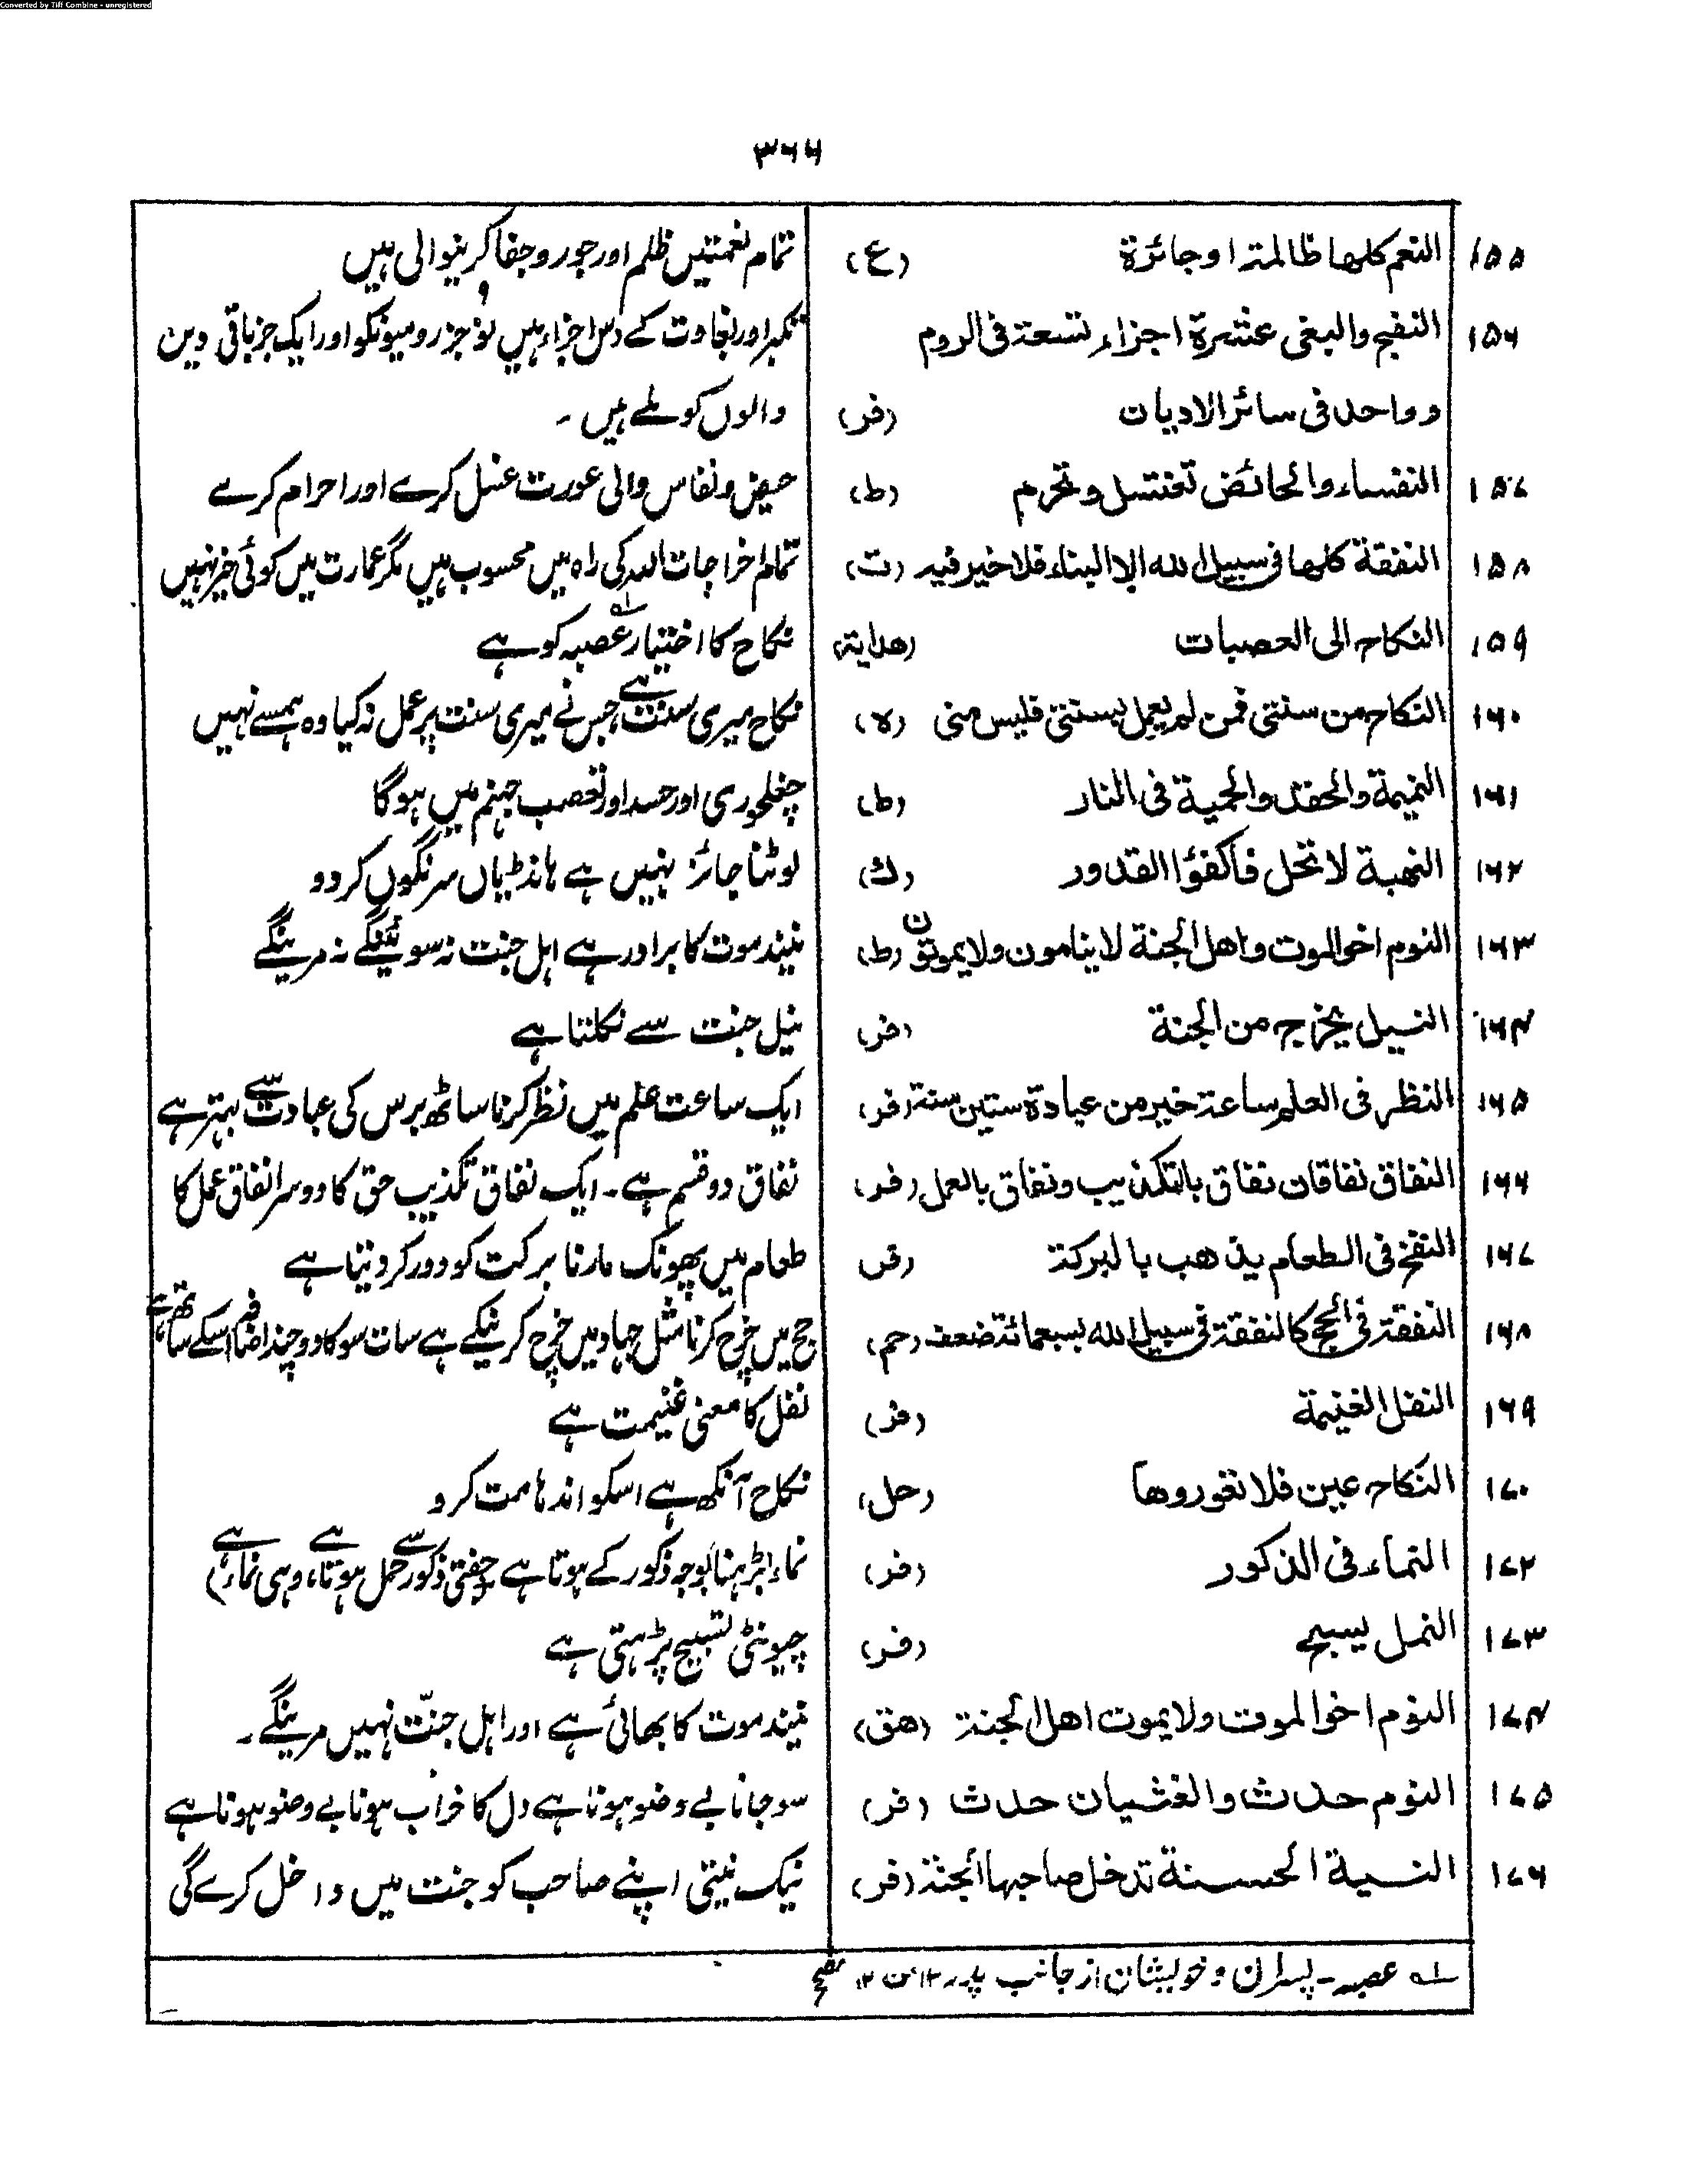 Converted by Tiff Combine - unregistered
۳۶۶
۱۵۵ النعم كلها ظالمة او جائرة (ع) تمام نعمتیں ظلم اور جور و جفا کرینوالی ہیں
۱۵۶ النفج والبغی عشرة اجزاء تسعة فی الروم تکبر اور بغاوت کے دس اجزاء ہیں نو جزر ومیونکو اور ایک جز باقی دین
وواحد فی سائر الادیان (فر) والوں کو ملے ہیں ۔
۱۵۷ النفساء والحائض تغتسل وتحرم (ط) حیض و نفاس والی عورت غسل کرے اور احرام کرے
۱۵۸ النفقة كلها فی سبیل الله الا البناء فلا خیر فیه (ت) تمام اخراجات اللہ کی راہ میں محسوب ہیں مگر عمارت میں کوئی خیر نہیں
۱۵۹ النکاح الی العصبات (هدایة) نکاح کا اختیار عصبہ کو ہے
۱۶۰ النکاح من سنتی فمن لم یعمل بسنتی فلیس منی (ہ) نکاح میری سنت ہے جس نے میری سنت پر عمل نہ کیا وہ ہمسے نہیں
۱۶۱ النمیمة والحقد والحمیة فی النار (ط) چغلخوری اور حسد اور تعصب جہنم میں ہوگا
۱۶۲ النهبة لا تحل فاکفؤا القدور (ك) لوٹنا جائز نہیں ہے ہانڈیاں سرنگوں کردو
۱۶۳ النوم اخو الموت واهل الجنة لا ینامون ولا یموتون (ط) نیند موت کا برادر ہے اہل جنت نہ سوئینگے نہ مرینگے
۱۶۴ النیل یخرج من الجنة (فر) نیل جنت سے نکلتا ہے
۱۶۵ النظر فی العلم ساعة خیر من عبادة ستین سنة (فر) ایک ساعت علم میں نظر کرنا ساٹھ برس کی عبادت سے بہتر ہے
۱۶۶ النفاق نفاقان نفاق بالتکذیب ونفاق بالعمل (فر) نفاق دو قسم ہے ۔ ایک نفاق تکذیب حق کا دوسرا نفاق عمل کا
۱۶۷ النفخ فی الطعام یذهب بالبرکة (فر) طعام میں پھونک مارنا برکت کو دور کردیتا ہے
۱۶۸ النفقة فی الحج کالنفقة فی سبیل الله بسبعمائة ضعف (حم) حج میں خرچ کرنا مثل جہاد میں خرچ کرنیکے ہے سات سو کا دوچند اضافہ اسکے ساتھ ہے
۱۶۹ النفل الغنیمة (فر) نفل کا معنی غنیمت ہے
۱۷۰ النکاح عین فلا تغوروها (حل) نکاح آنکھ ہے اسکو اندھا مت کرو
۱۷۲ النماء فی الذکور (فر) نماء (بڑہنا) بوجہ ذکور کے ہوتا ہے (جفتی ذکور سے حمل ہوتا ہے، وہی نماء ہے)
۱۷۳ النمل یسبح (فر) چیونٹی تسبیح پڑہتی ہے
۱۷۴ النوم اخو الموت ولا یموت اهل الجنة (هق) نیند موت کا بھائی ہے اور اہل جنّت نہیں مرینگے ۔
۱۷۵ النوم حدث والغثیان حدث (فر) سو جانا بے وضو ہونا ہے دل کا خراب ہونا بے وضو ہونا ہے
۱۷۶ النیة الحسنة تدخل صاحبها الجنة (فر) نیک نیتی اپنے صاحب کو جنت میں داخل کرے گی
لہ عصبہ ۔ پسران و خویشان از جانب پدر ۱۲ من ۱۲ مصحح